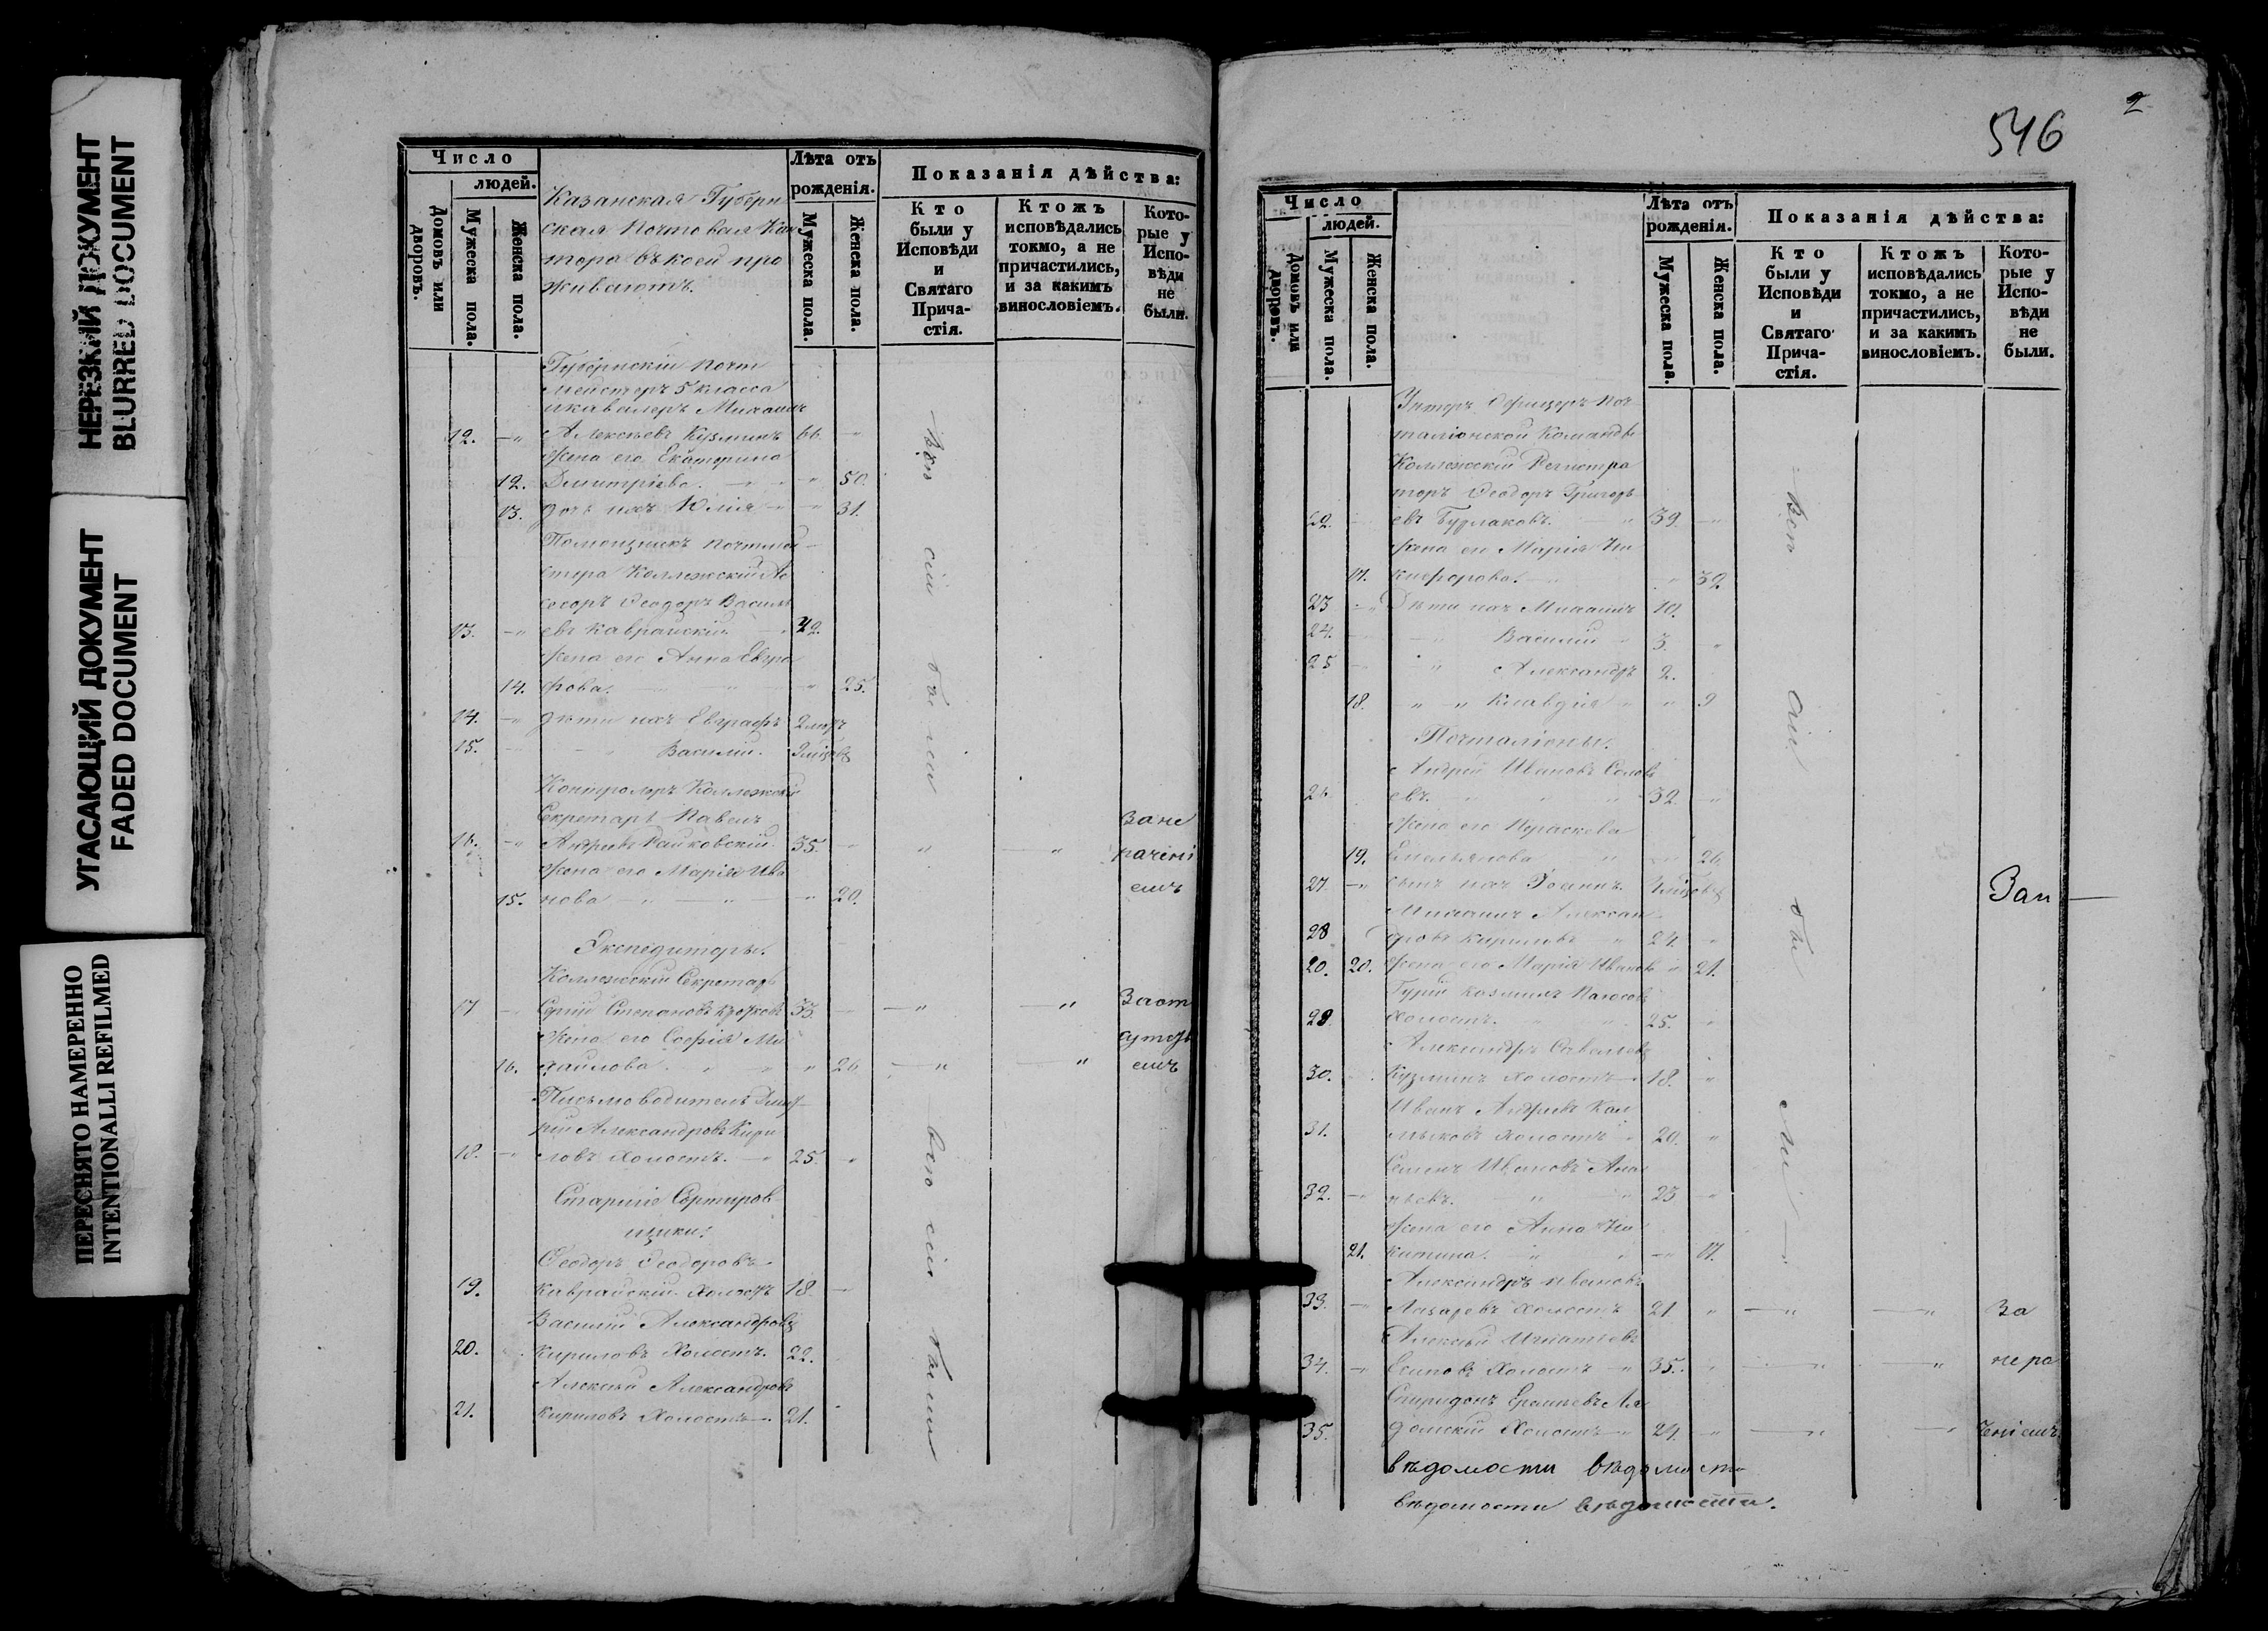 НЕРЕЗКИЙ ДОКУМЕНТ
BLURRED DOCUMENT
УГАСАЮЩИЙ ДОКУМЕНТ
FADED DOCUMENT
ПЕРЕСНЯТО НАМЕРЕННО
INTENTIONALLI REFILMED
Число
людей.
Домовъ или
дворовъ.
Мужеска пола.
Женска пола.
Казанская Губерн
ская Почтовая Кан
тора въ коей про
живаютъ.
Лѣта отъ
рожденія.
Мужеска пола.
Женска пола.
Показанія дѣйства:
Кто
были у
Исповѣди
и
Святаго
Прича-
стія.
Ктожъ
исповѣдались
токмо, а не
причастились,
и за какимъ
винословіемъ.
Кото-
рые у
Испо-
вѣди
не
были.
Губернскій Почт
мейстеръ 5 класса
и кавалеръ Михаилъ
12. Алексѣевъ Кузминъ 66.
Жена его Екатерина
12. Дмитріева. 50.
13. дочь ихъ Юлія 31.
Помощникъ почтмей
стера Коллежскій Ас
сесоръ Ѳеодоръ Василь
13. евъ Каврайскій 42.
Жена его Анна Евгра
14. фова. 25.
14. дѣти ихъ Евграфъ
15. Василій.
Контролеръ Коллежскій
Секретарь Павелъ
16. Андреевъ Райковскій. 35.
Жена его Марія Ива
15. нова 20.
За не
рачені
емъ
Экспедиторы.
Коллежскій Секретарь
17 Сергій Степановъ 33.
Жена его Софія Ми
16. хайлова. 26
За от
сутстві
емъ
Письмоводитель Дмит
рій Александровъ Кири
18. ловъ холостъ. 25.
Старшіе Сортиров
щики:
Ѳеодоръ Ѳеодоровъ
19. Каврайскій холостъ 18.
Василій Александровъ
20. Кириловъ Холостъ. 22.
Алексѣй Александровъ
21. Кириловъ Холостъ. 21.
Вси сіи были
вси сіи были
546
2
Число
людей.
Домовъ или
дворовъ.
Мужеска пола.
Женска пола.
Лѣта отъ
рожденія.
Мужеска пола.
Женска пола.
Показанія дѣйства:
Кто
были у
Исповѣди
и
Святаго
Прича-
стія.
Ктожъ
исповѣдались
токмо, а не
причастились,
и за какимъ
винословіемъ.
Кото-
рые у
Испо-
вѣди
не
были.
Унтеръ Офицеръ Поч
таліонской Команды
Коллежскій Регистра
торъ Ѳеодоръ Григорь
22. евъ Бурлаковъ. 39.
Жена его Марія Ни
17. кифорова. 32
23 Дѣти ихъ Михаилъ 10.
24. Василій 3.
25 Александръ 2.
18. Клавдія 9
Почталіоны.
Андрей Ивановъ Солов
26 евъ. 32.
Жена его Параскева
19. Емельянова 26
27 сынъ ихъ Іоаннъ.
Михаилъ Алексан
28 дровъ Кириловъ 24.
20. 20. Жена его Марія Иванов 21.
Гурій Козминъ
29 Холостъ. 25.
Александръ Савельевъ
30. Кузминъ холостъ 18.
Иванъ Андреевъ Кал
31. мыковъ холостъ 20.
Семенъ Ивановъ Анан
32. ьевъ. 23
Жена его Анна Ни
21. китина. 17.
Александръ Ивановъ
33. Лазаревъ холостъ 21.
Алексѣй Игнатьевъ
34. Есиповъ Холостъ 35.
Спиридонъ
35. Холостъ 24.
Вси сіи бы ли
Зап
За
не ра
ченіемъ
вѣдомости вѣдомости
вѣдомости вѣдомости.